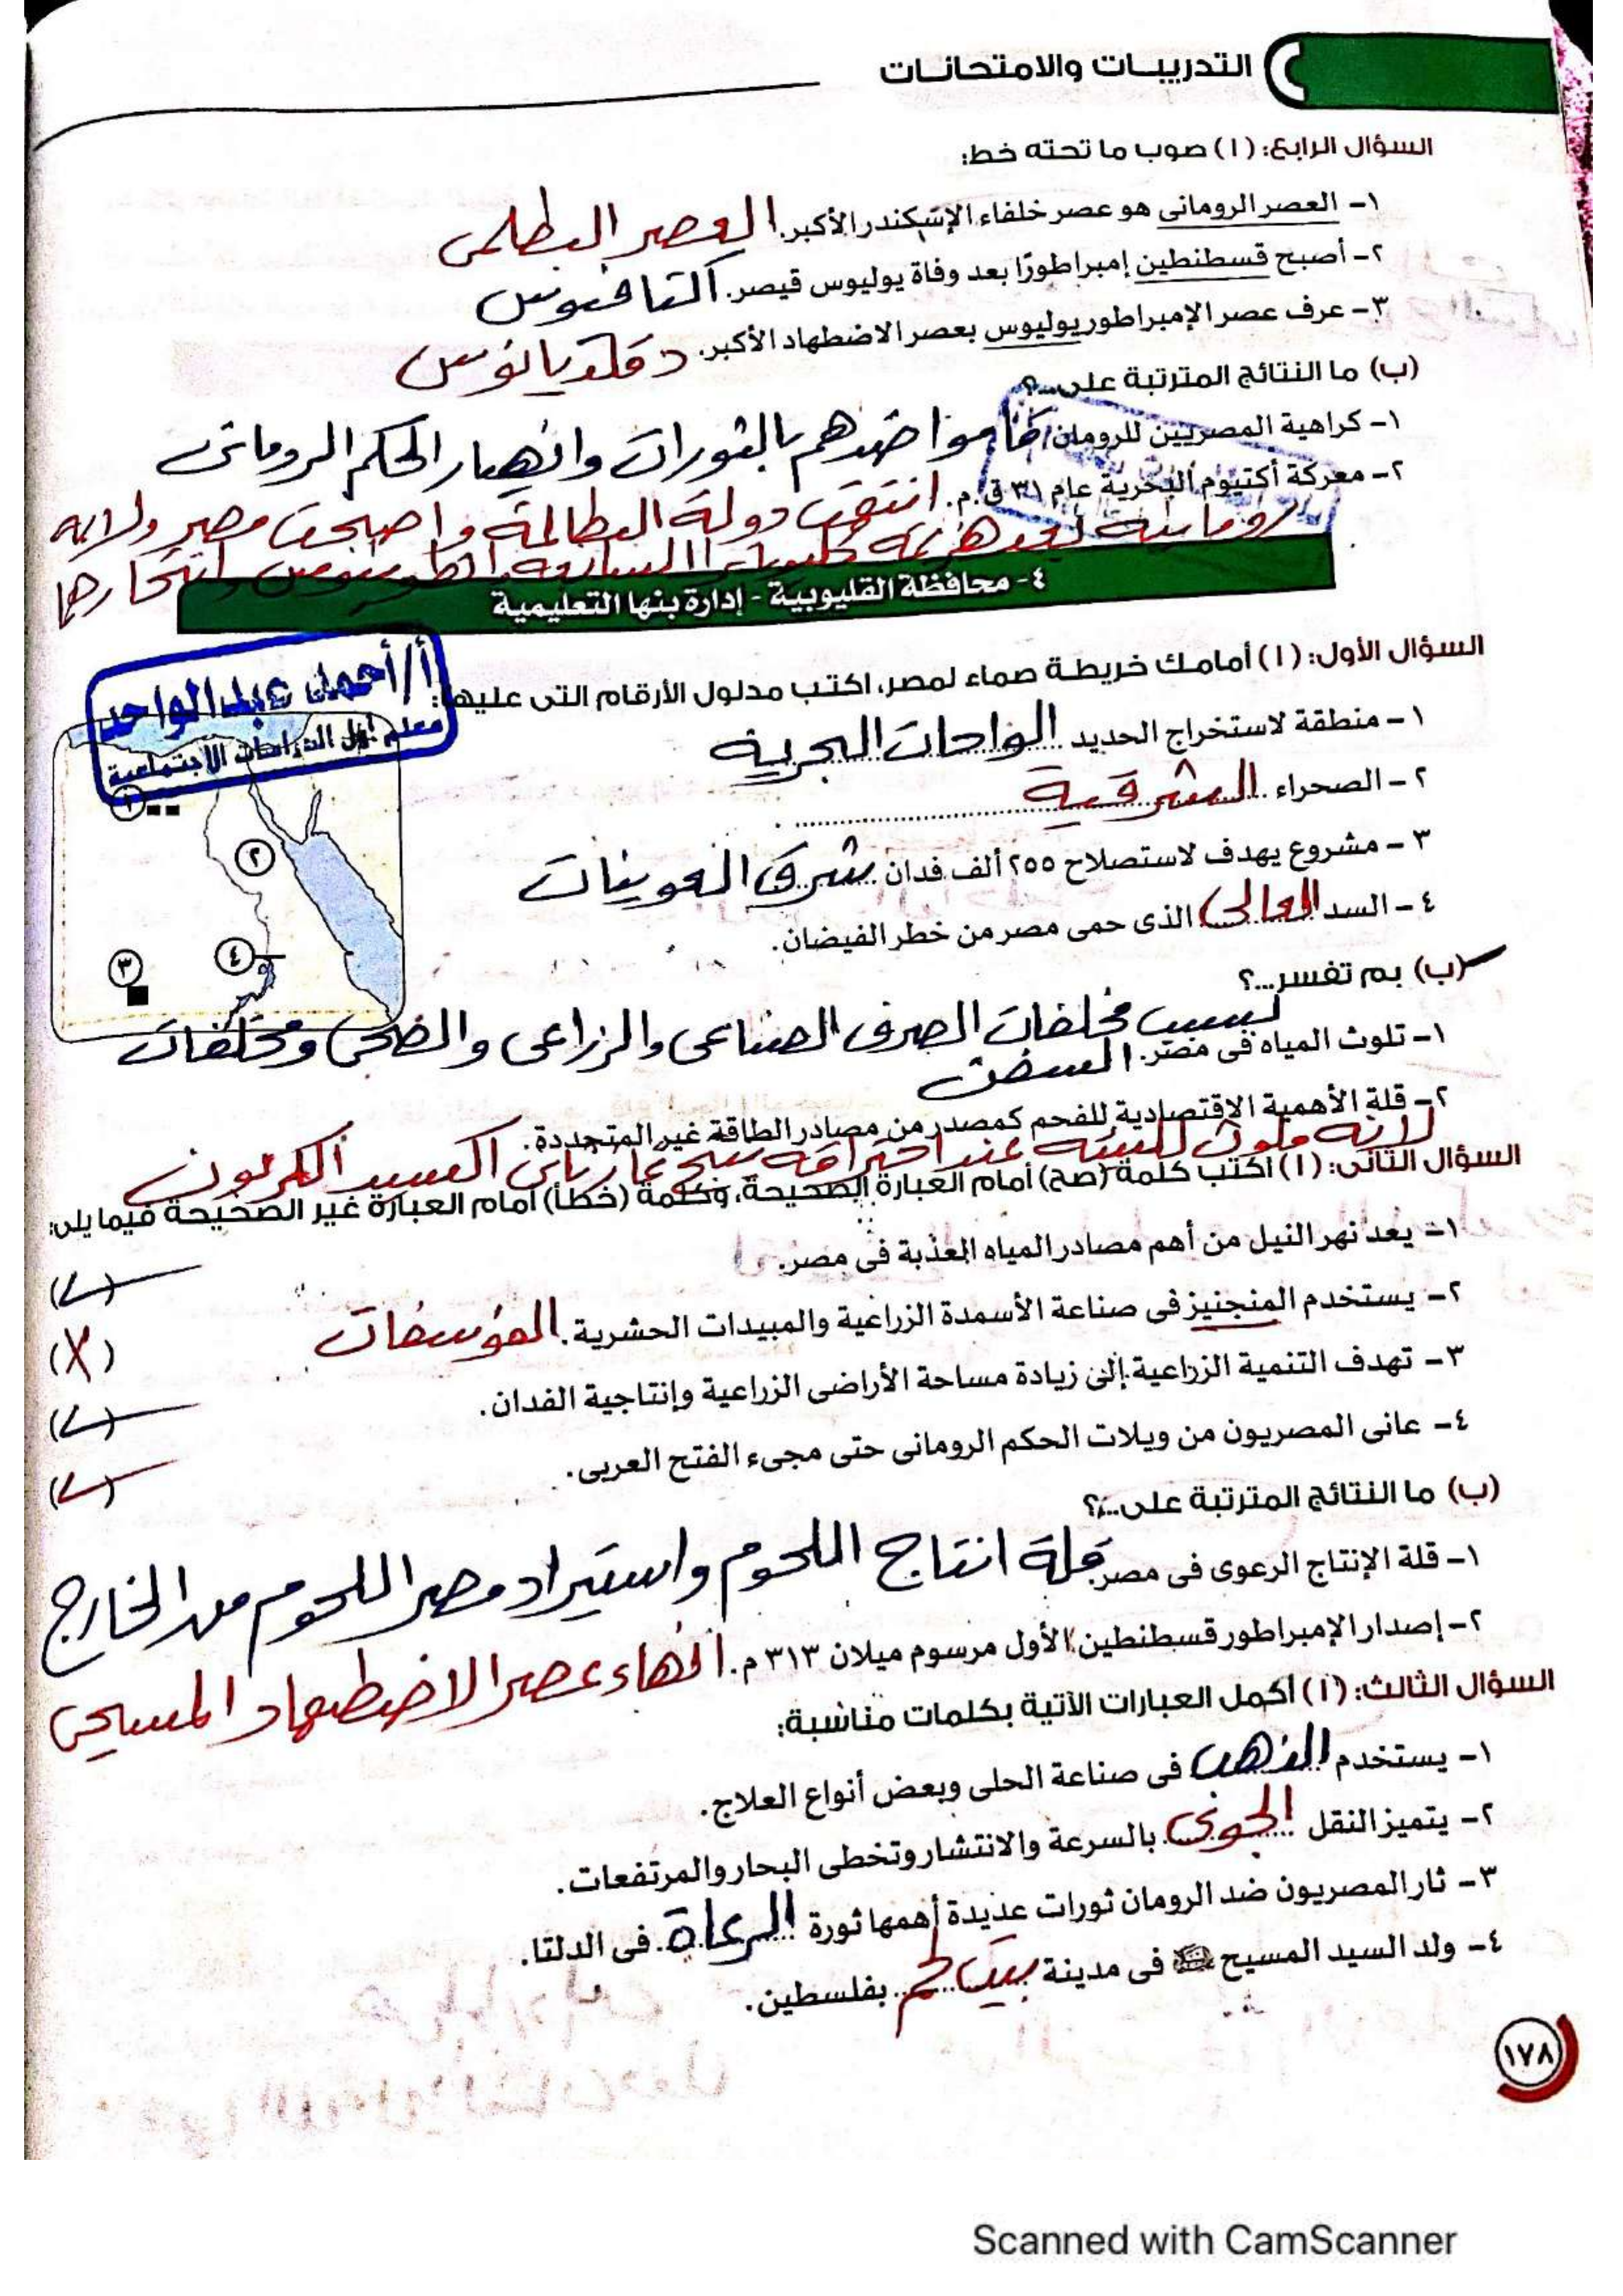 التدريبات والامتحانات
السؤال الرابع: (ا) صوب ما تحته خط:
١- العصر الرومانى هو عصر خلفاء الإسكندر الأكبر. العصر البطلمى
٢- أصبح قسطنطين إمبراطورًا بعد وفاة يوليوس قيصر. اكتافيوس
٣- عرف عصر الإمبراطور يوليوس بعصر الاضطهاد الأكبر. دقلديانوس
(ب) ما النتائج المترتبة على...؟
١- كراهية المصريين للرومان. قاموا ضدهم بالثورات وانهيار الحكم الرومانى
٢- معركة أكتيوم البحرية عام ٣١ ق.م. انتهت دولة البطالمة واصبحت مصر ولاية
رومانية بعد هزيمة كليوباترا السابعة وانطونيوس وانتحارها
٤- محافظة القليوبية - إدارة بنها التعليمية
السؤال الأول: (ا) أمامك خريطة صماء لمصر، اكتب مدلول الأرقام التى عليها:
أ/أحمد عبدالواحد
معلم أول الدراسات الاجتماعية
١- منطقة لاستخراج الحديد الواحات البحرية
٢- الصحراء الشرقية
٣- مشروع يهدف لاستصلاح ٢٥٥ ألف فدان شرق العوينات
٤- السد العالى الذى حمى مصر من خطر الفيضان.
١
٢
٣
٤
(ب) بم تفسر...؟
١- تلوث المياه فى مصر. بسبب مخلفات الصرف الصناعى والزراعى والصحى ومخلفات
السفن
٢- قلة الأهمية الاقتصادية للفحم كمصدر من مصادر الطاقة غير المتجددة.
لانه ملوث للبيئة عند احتراقه ينتج غاز ثانى اكسيد الكربون
السؤال الثانى: (ا) اكتب كلمة (صح) أمام العبارة الصحيحة، وكلمة (خطأ) أمام العبارة غير الصحيحة فيما يلى:
١- يعد نهر النيل من أهم مصادر المياه العذبة فى مصر. (✓)
٢- يستخدم المنجنيز فى صناعة الأسمدة الزراعية والمبيدات الحشرية. الفوسفات (X)
٣- تهدف التنمية الزراعية إلى زيادة مساحة الأراضى الزراعية وإنتاجية الفدان. (✓)
٤- عانى المصريون من ويلات الحكم الرومانى حتى مجىء الفتح العربى. (✓)
(ب) ما النتائج المترتبة على...؟
١- قلة الإنتاج الرعوى فى مصر. قلة انتاج اللحوم واستيراد مصر اللحوم من الخارج
٢- إصدار الإمبراطور قسطنطين الأول مرسوم ميلان ٣١٣ م. انهاء عصر الاضطهاد المسيحى
السؤال الثالث: (ا) أكمل العبارات الآتية بكلمات مناسبة:
١- يستخدم الذهب فى صناعة الحلى وبعض أنواع العلاج.
٢- يتميز النقل الجوى بالسرعة والانتشار وتخطى البحار والمرتفعات.
٣- ثار المصريون ضد الرومان ثورات عديدة أهمها ثورة الرعاة فى الدلتا.
٤- ولد السيد المسيح فى مدينة بيت لحم بفلسطين.
١٧٨
Scanned with CamScanner